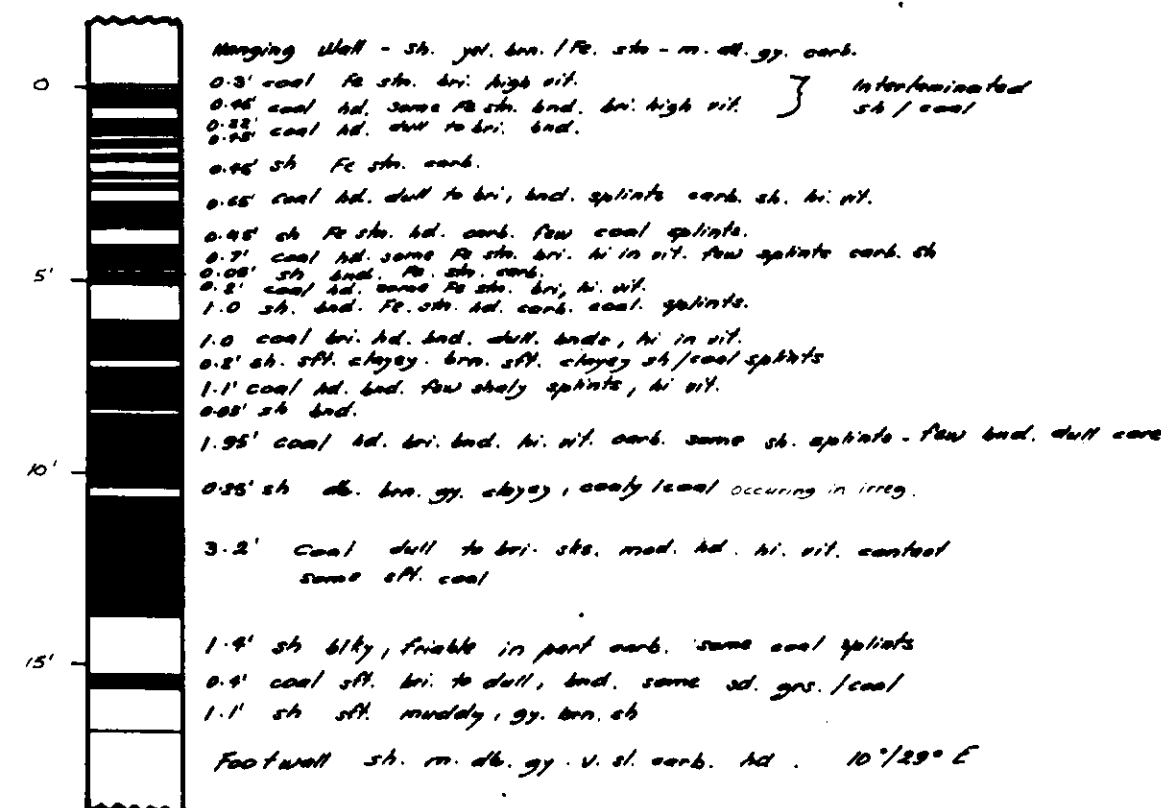 Hanging Wall - sh. yel. brn. / Fe. stn - m. db. gy. carb.
0
0.3' coal Fe stn. bri. high vit.
0.45' coal hd. some Fe stn. bnd. bri. high vit.
Interlaminated
sh / coal
0.22'
0.45' coal hd. dull to bri. bnd.
0.45' sh Fe stn. carb.
0.65' coal hd. dull to bri, bnd. splints carb. sh. hi. vit.
0.45' sh Fe stn. hd. carb. few coal splints.
0.7' coal hd. some Fe stn. bri. hi in vit. few splints carb. sh
0.05' sh bnd. Fe. stn. carb.
5'
0.2' coal hd. some Fe stn. bri, hi. vit.
1.0 sh. bnd. Fe. stn. hd. carb. coal. splints.
1.0 coal bri. hd. bnd. dull. bnds, hi in vit.
0.2' sh. sft. clayey. brn. sft. clayey sh/coal splints
1.1' coal hd. bnd. few shaly splints, hi vit.
0.03' sh bnd.
1.95' coal hd. bri. bnd. hi. vit. carb. some sh. splints - few bnd. dull core
10'
0.25' sh db. brn. gy. clayey, coaly /coal occuring in irreg.
3.2' Coal dull to bri. sks. mod. hd. hi. vit. contact
some sft. coal
1.4' sh blky, friable in part carb. some coal splints
15'
0.4' coal sft. bri. to dull, bnd. some sd. grs. /coal
1.1' sh sft. muddy, gy. brn. sh
Footwall sh. m. db. gy. v. sl. carb. hd. 10°/29° E